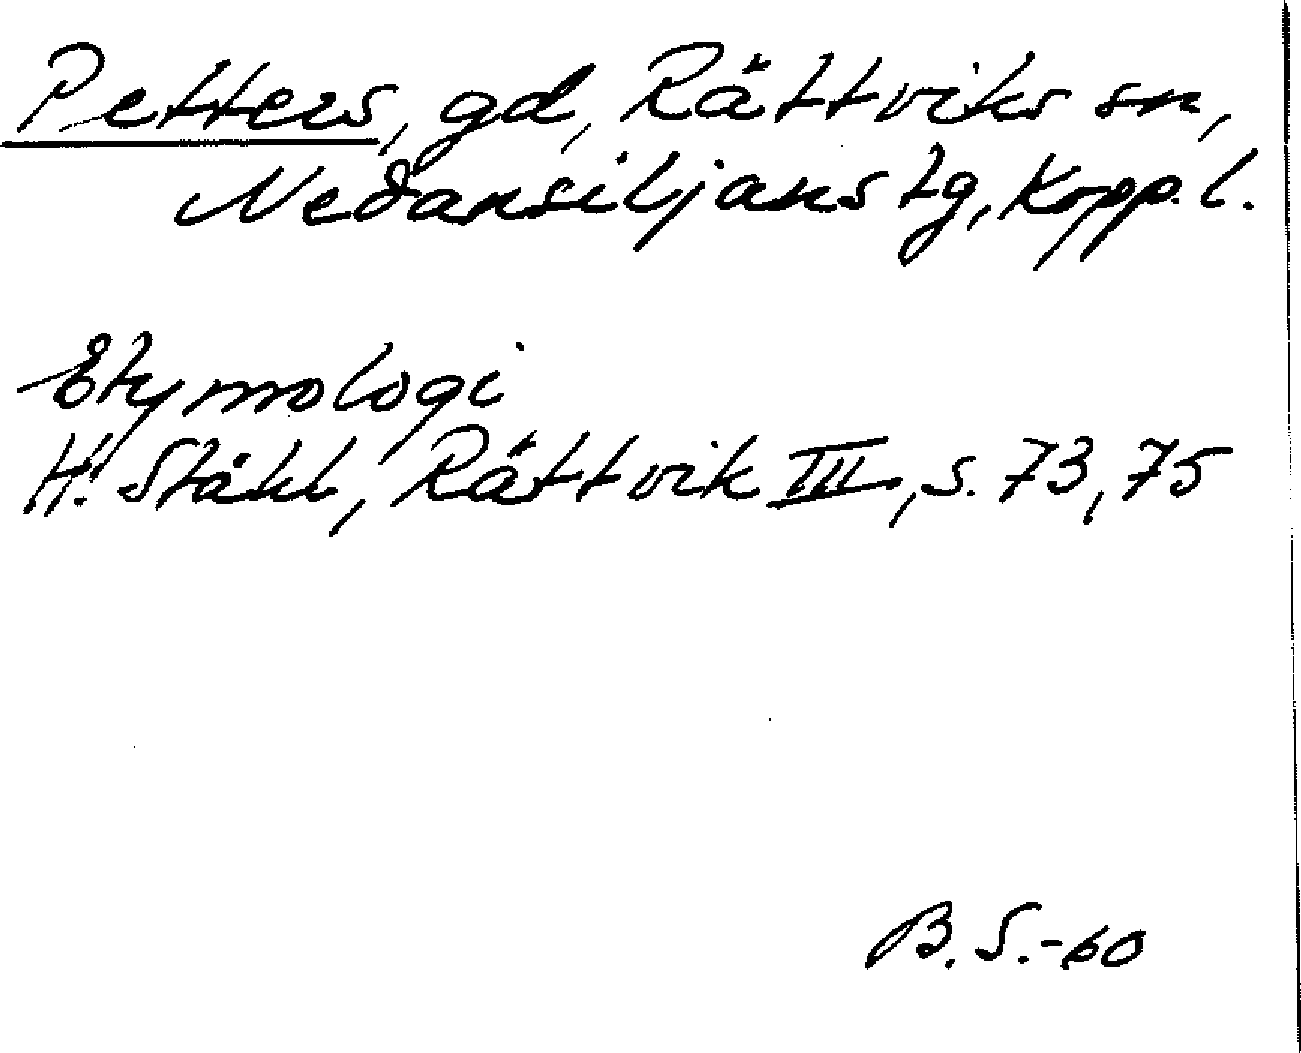 Petters, gd, Rättviks sn,
Nedansiljans tg, Kopp. l.
Etymologi
H. Ståhl, Rättvik III, s. 73, 75
B. S. -60